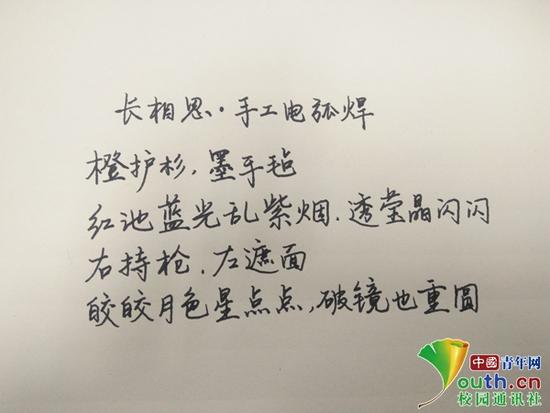 长相思·手工电弧焊
橙护衫,墨手毡
红池蓝光乱紫烟.透莹晶闪闪
右持枪.左遮面
皎皎月色星点点,破镜也重圆
中國青年网
outh.cn
校园通讯社